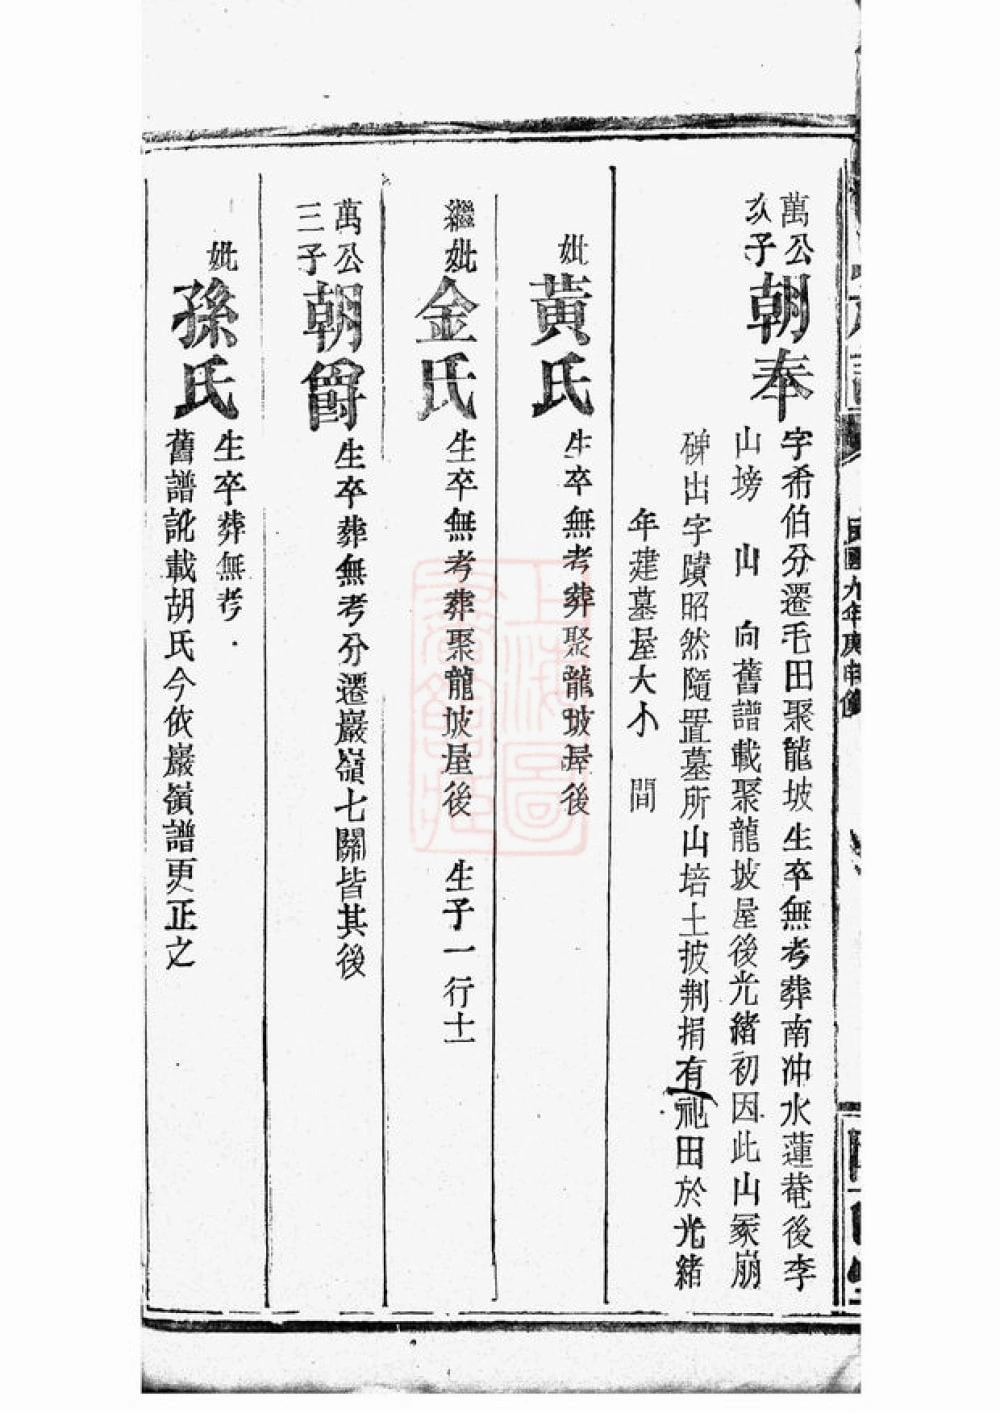 萬公
次子
朝奉
字希伯分遷毛田聚龍坡生卒無考葬南冲水蓮菴後李
山塝　山　向舊譜載聚龍坡屋後光緒初因此山冢崩
碑出字蹟昭然隨置墓所山培土披荆捐有祀田於光緒
年建墓屋大小　間
妣
黃氏
生卒無考葬聚龍坡屋後
繼妣
金氏
生卒無考葬聚龍坡屋後　生子一行士
萬公
三子
朝爵
生卒葬無考分遷巖嶺七關皆其後
妣
孫氏
生卒葬無考
舊譜訛載胡氏今依巖嶺譜更正之
民國九年庚申修
上海圖書館藏